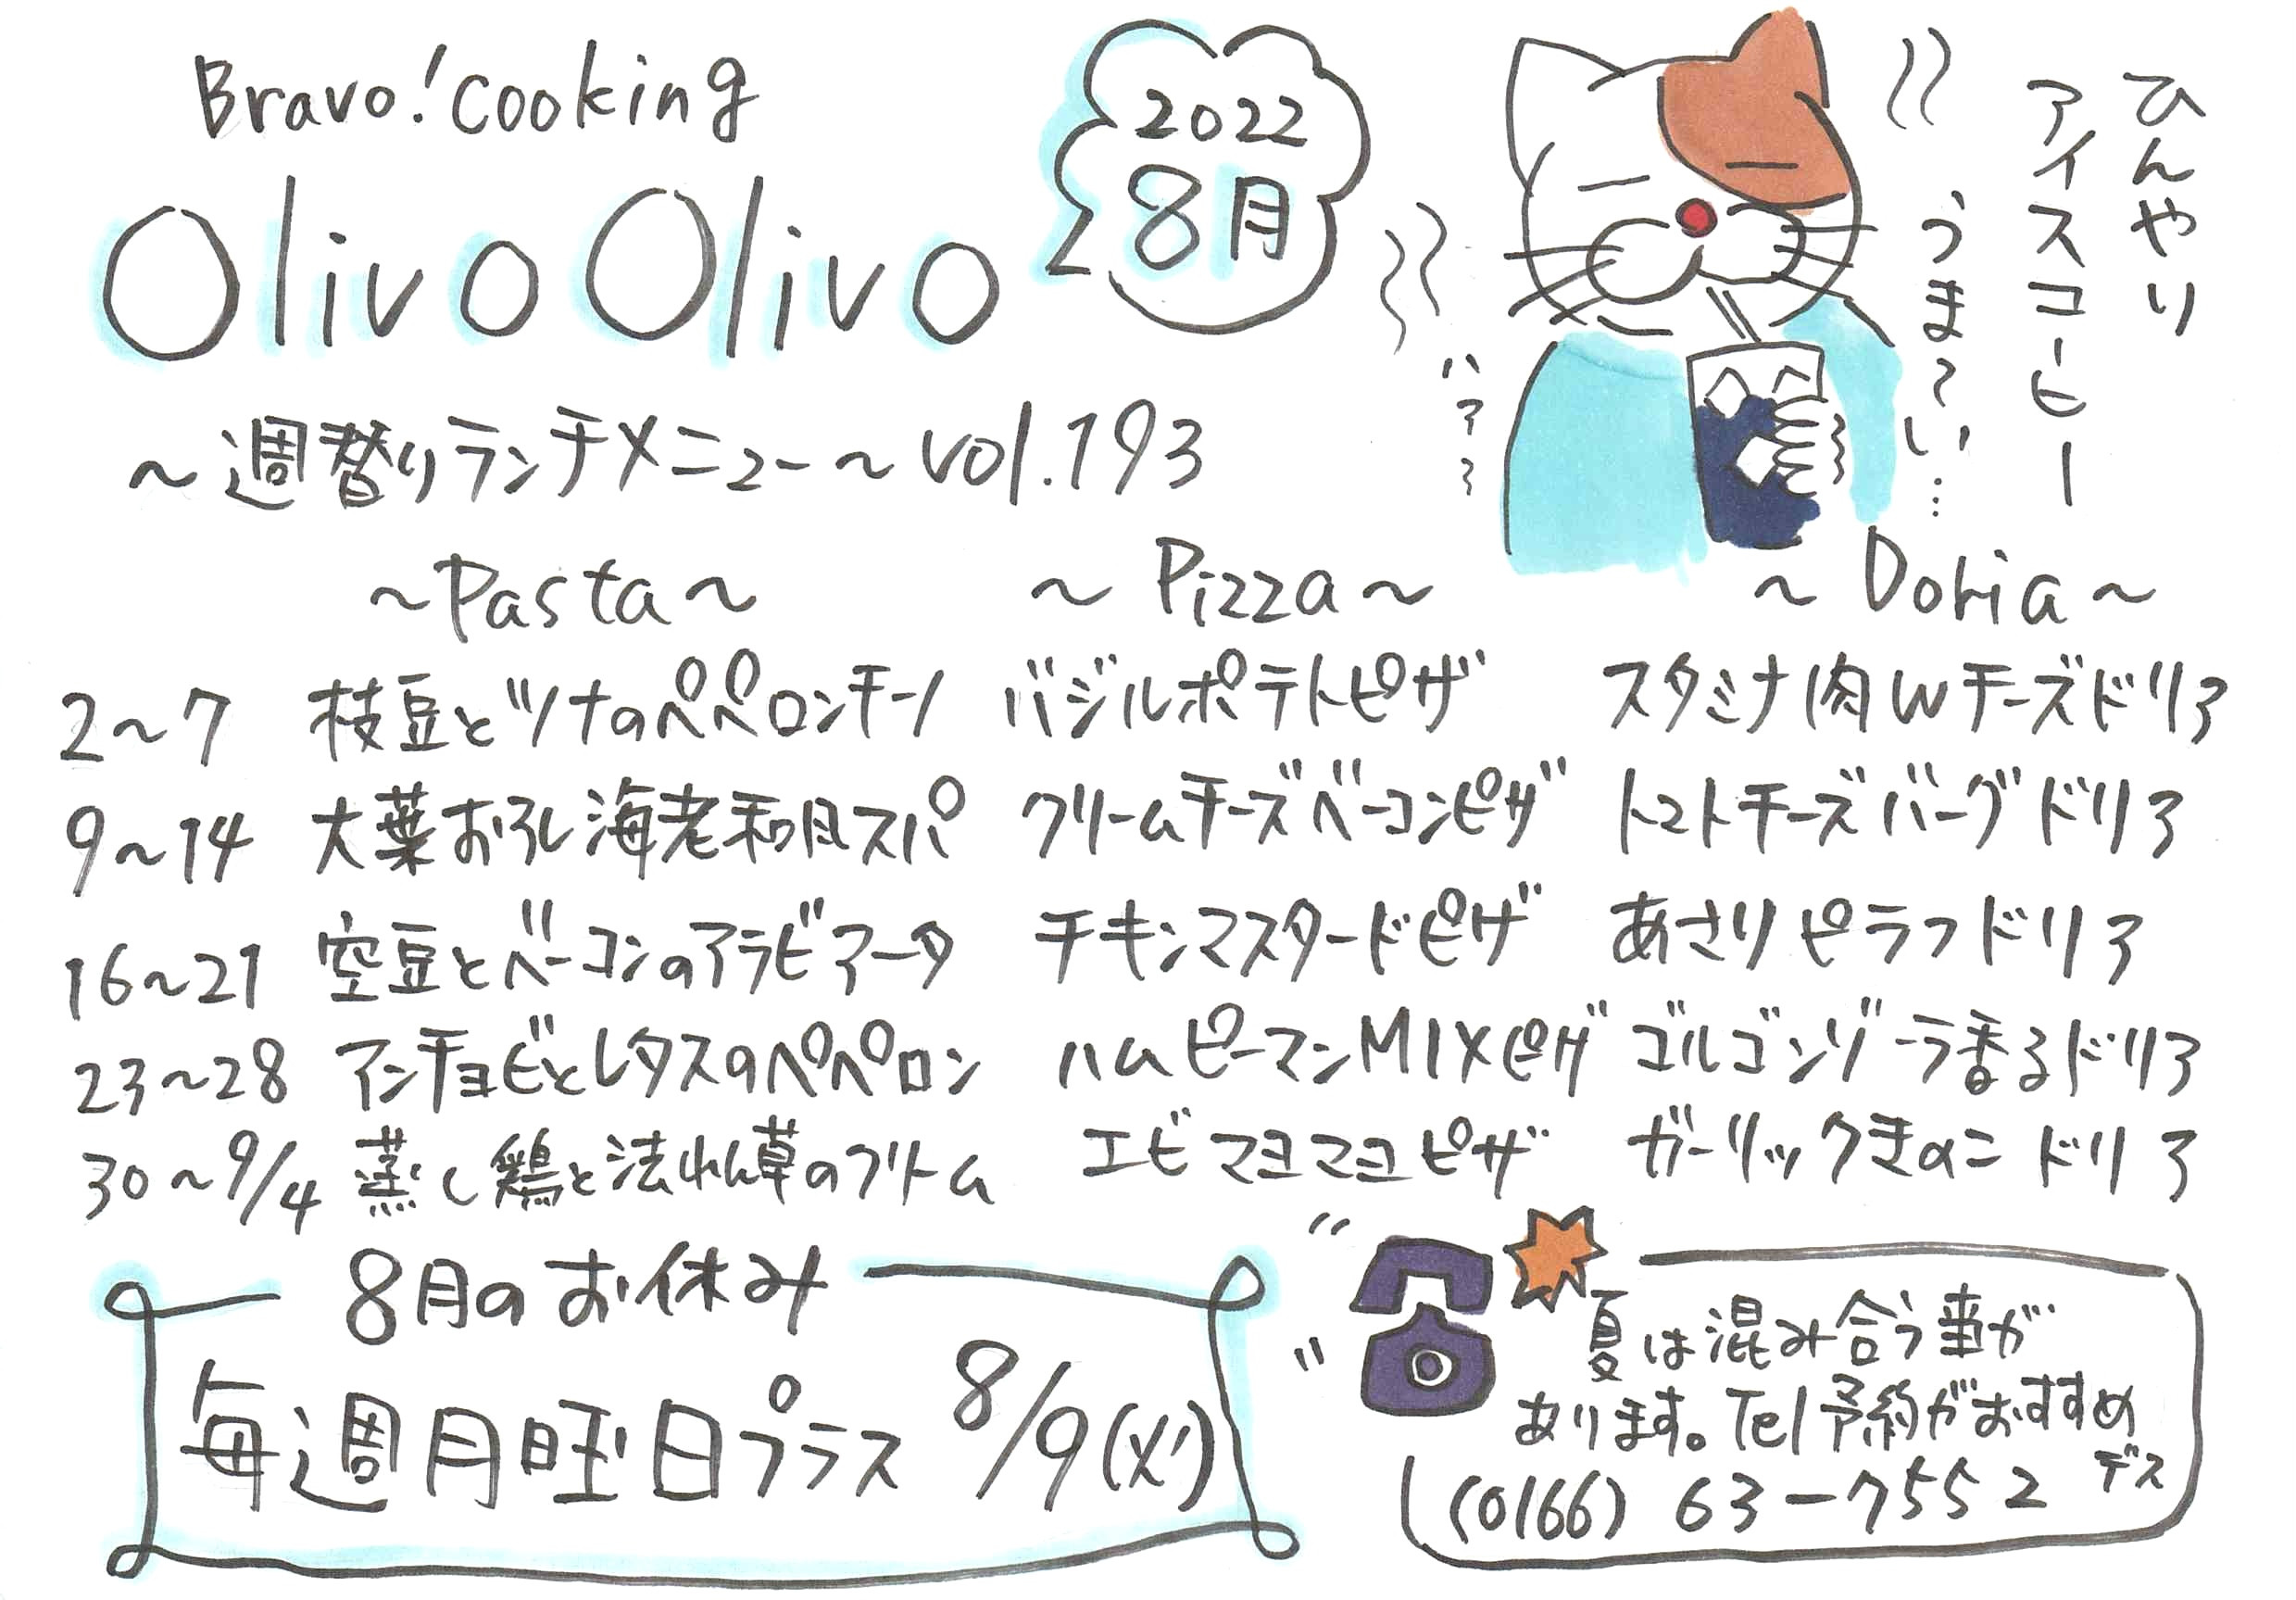 Bravo!Cooking
Olivo Olivo
2022
8月
ひんやり
アイスコーヒー
うまくい…
ハアァ
～週替りランチメニュー～vol.193
～Pasta～ ～Pizza～ ～Doria～
2～7 枝豆とツナのペペロンチーノ バジルポテトピザ スタミナ肉Wチーズドリア
9～14 大葉おろし海老和風スパ クリームチーズベーコンピザ トマトチーズバーグドリア
16～21 空豆とベーコンのアラビアータ チキンマスタードピザ あさりピラフドリア
23～28 アンチョビとレタスのペペロン ハムピーマンMIXピザ ゴルゴンゾーラ香るドリア
30～9/4 蒸し鶏と法れん草のクリーム エビマヨマヨピザ ガーリックきのこドリア
8月のお休み
毎週月曜日プラス8/9(火)
夏は混み合う事が
あります。Tel予約がおすすめ
デス
(0166) 63-7552